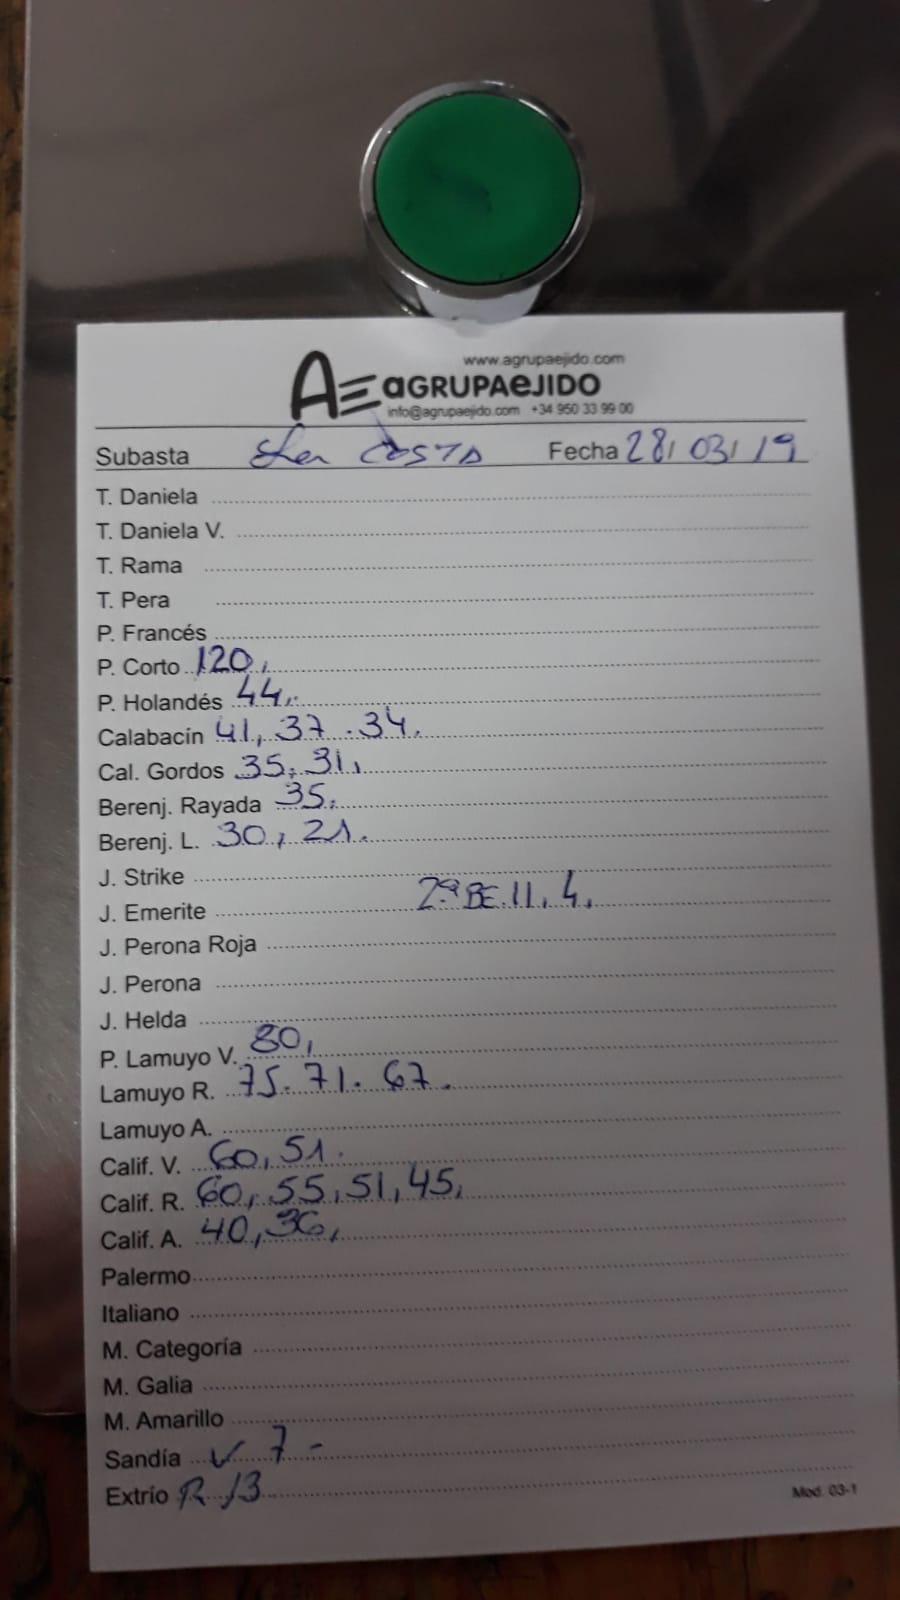 www.agrupaejido.com
AE aGRUPAeJIDO
info@agrupaejido.com +34 950 33 99 00
Subasta La COSTA Fecha 28/ 03/ 19
T. Daniela
T. Daniela V.
T. Rama
T. Pera
P. Francés
P. Corto 120,
P. Holandés 44,
Calabacín 41, 37 . 34.
Cal. Gordos 35, 31,
Berenj. Rayada 35,
Berenj. L. 30, 21.
J. Strike
J. Emerite 2ª BE. 11, 4,
J. Perona Roja
J. Perona
J. Helda
P. Lamuyo V. 80,
Lamuyo R. 75. 71. 67.
Lamuyo A.
Calif. V. 60, 51.
Calif. R. 60, 55, 51, 45,
Calif. A. 40, 36,
Palermo
Italiano
M. Categoría
M. Galia
M. Amarillo
Sandía V 7 -
Extrío R 13
Mod. 03-1